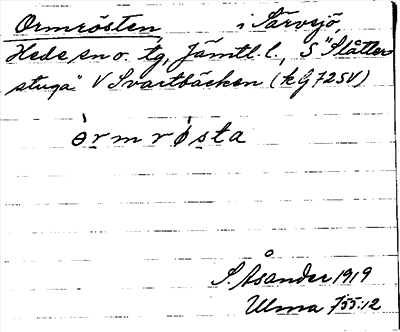 Ormrösten i Särvsjö,
Hede sn o. tg, Jämtl. l., S "Slåtter-
stuga" V Svartbäcken (kg 72 SV)
òrmrø̀sta
S. Åsander 1919
Ulma 755:12